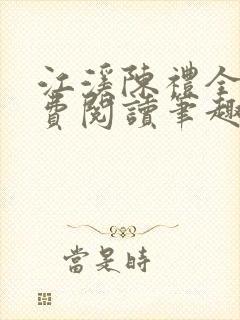 江溪陳禮全
費閱讀筆趣
當是時